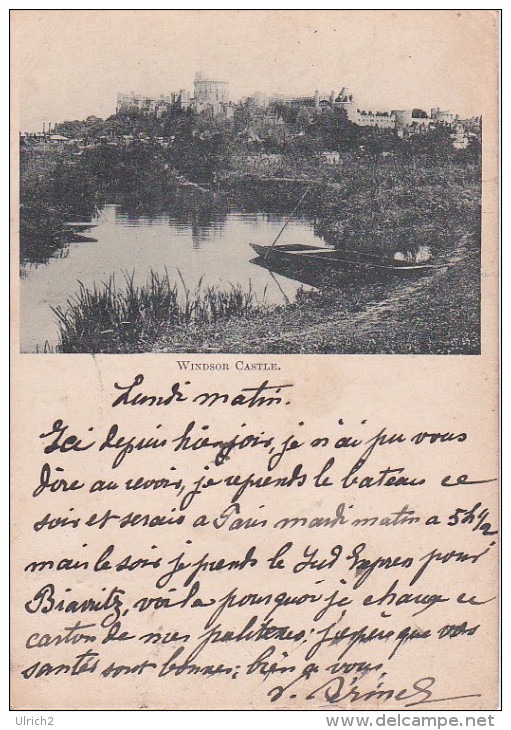 WINDSOR CASTLE.
Lundi matin.
Ici depuis hier soir, je n'ai pu vous
dire au revoir, je reprends le bateau ce
soir et serais a Paris mardi matin a 5h ½
mais le soir je prends le Sud Express pour
Biarritz, voila pourquoi je change ce
carton de mes j'espère que vos
santés sont bonnes, bien a vous
Ulrich2
www.delcampe.net